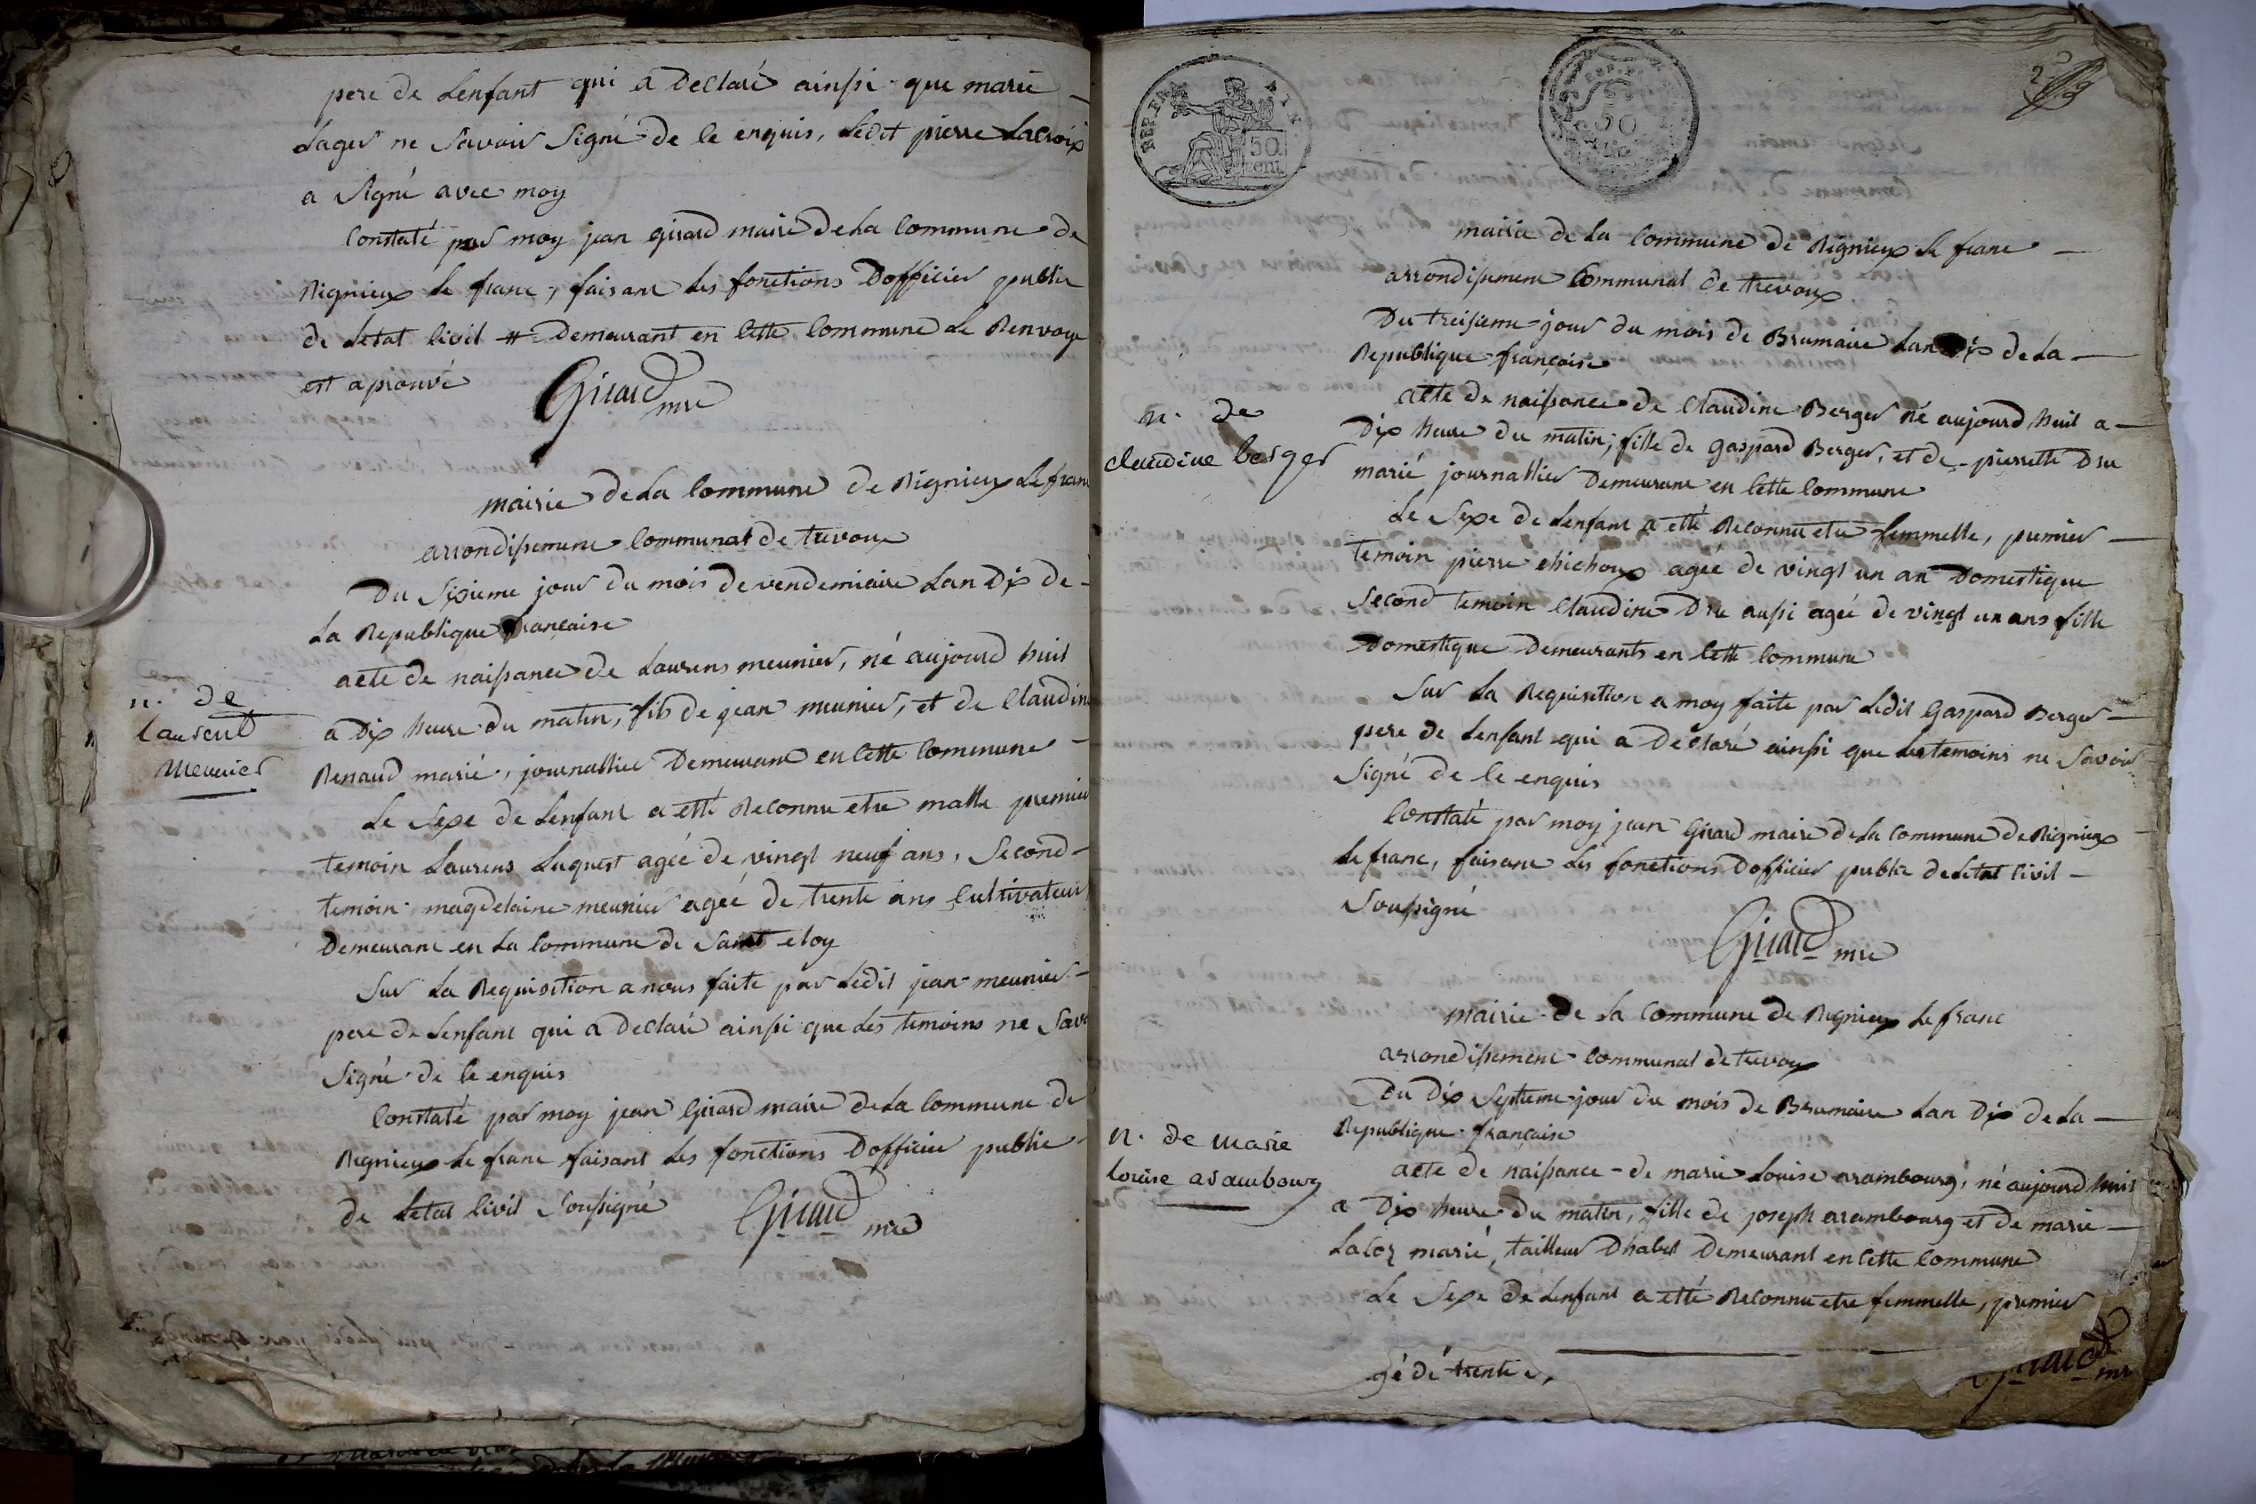 pere de Lenfant qui a declaré ainsi que marie
Lager ne Savoir Signé de ce enquis, Ledit pierre Lacroix
a Signé avec moy
Constaté par moy jean girard maire de La Commune de
Rignieux Le franc, faisant Les fonctions Dofficier public
de Letat Civil # Demeurant en Cette Commune Le Renvoye
est aprouvé
Girard
mre
mairie de La Commune de Rignieux Le franc
arrondissement Communal de trevoux
Du Sixieme jour du mois de vendemiaire Lan Dix de
La Republique française
n. de
Laurent
Meunier
acte de naissance de Laurens meunier, né aujourd huit
a Dix heure du matin, fils de jean meunier, et de Claudine
Renaud marié, journallier Demeurant en Cette Commune
Le Sexe de Lenfant a etté Reconnu etre malle premier
temoin Laurens Luquet agée de vingt neuf ans, Second
temoin magdelaine meunier agée de trente ans Cultivateur
Demeurant en La Commune de Saint eloy
Sur La Requisition a nous faite par Ledit jean meunier
pere de Lenfant qui a Declaré ainsi que Les temoins ne Savoir
Signé de ce enquis
Constaté par moy jean Girard maire de La Commune de
Rignieux Le franc faisant Les fonctions Dofficier public
de Letat Civil Soussigné
Girard mre
REP. FRA
50
cent
50
mairie de La Commune de Rignieux Le franc
arrondissement Communal de trevoux
Du treisieme jour du mois de Brumaire Lan Dix de La
Republique française
n. de
claudine berger
acte de naissance de Claudine Berger né aujourd huit a
Dix heure du matin, fille de gaspard Berger, et de pierrette Dru
marié journallier Demeurant en Cette Commune
Le Sexe de Lenfant a etté Reconnu etre femmelle, premier
temoin pierre chichoux agée de vingt un an Domestique
Second temoin Claudine Dru aussi agée de vingt un ans fille
Domestique Demeurants en Cette Commune
Sur La Requisition a moy faite par Ledit Gaspard Berger
pere de Lenfant qui a Declaré ainsi que Les temoins ne Savoir
Signé de Ce enquis
Constaté par moy jean Girard maire de La Commune de Rignieux
Le franc, faisant Les fonctions Dofficier public de Letat Civil
Soussigné
Girard mre
mairie de La Commune de Rignieux Le franc
arrondissement Communal de trevoux
Du Dix Septieme jour du mois de Brumaire Lan Dix de La
Republique française
n. de Marie
Louise arambourg
acte de naissance de marie Louise arambourg, né aujourd huit
a Dix heure du matin, fille de joseph arambourg et de marie
marié, tailleur Dhabet Demeurant en Cette Commune
Le Sexe de Lenfant a etté Reconnu etre femmelle, premier
gé de trente
Girard
mr